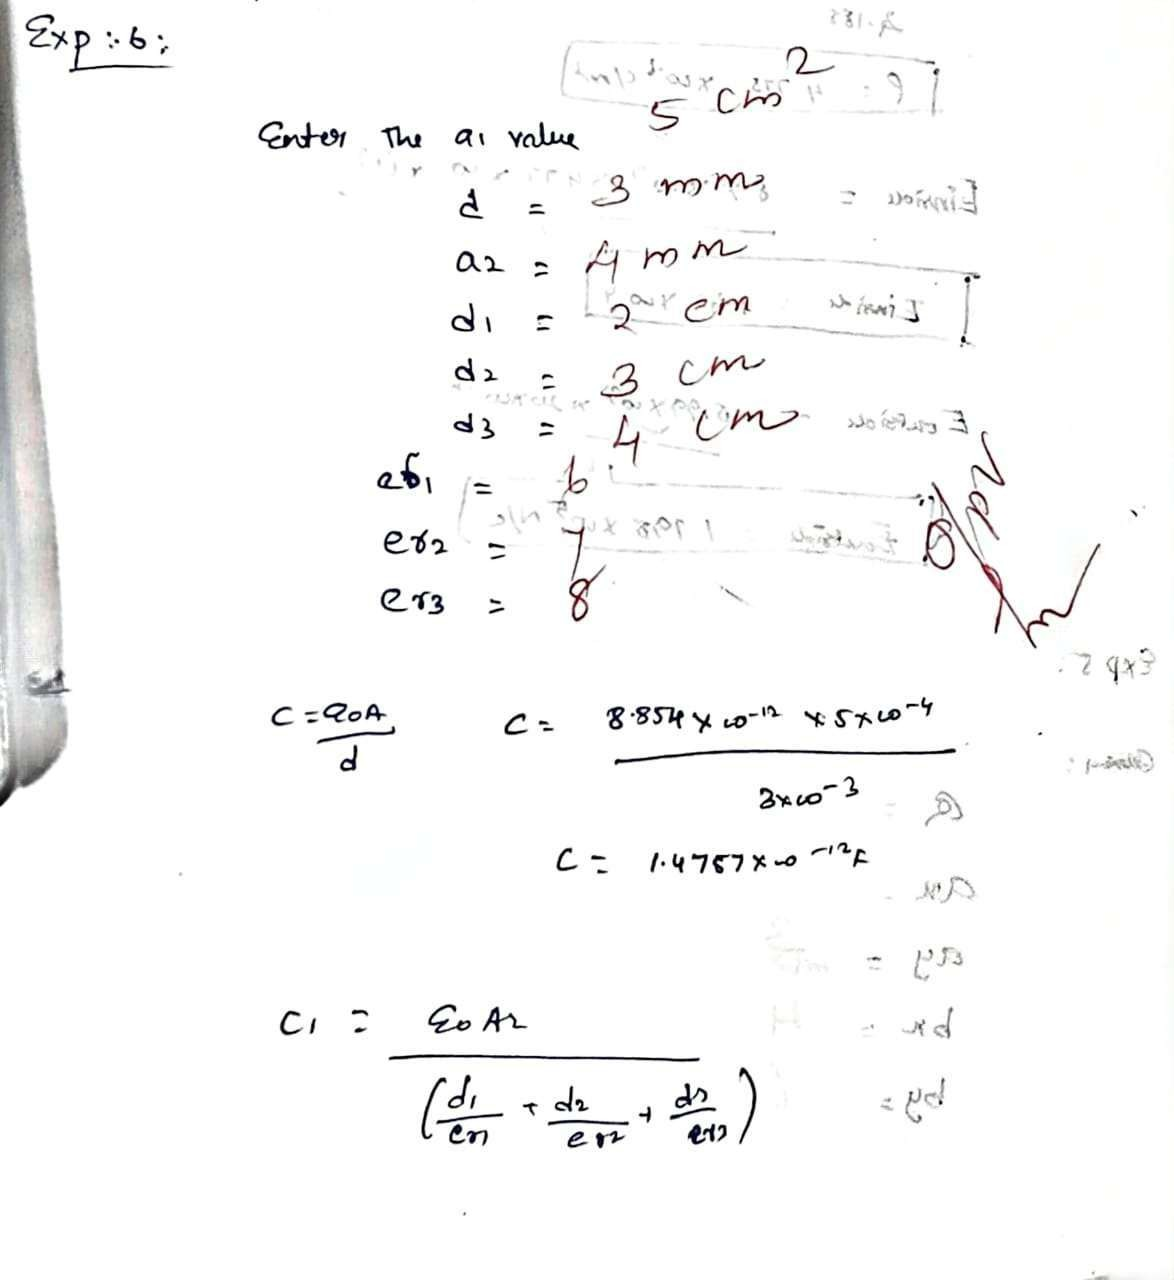 Exp :- 6 :
Enter The a1 value 5 cm²
d = 3 mm
a2 = 4 mm
d1 = 2 cm
d2 = 3 cm
d3 = 4 cm
er1 = 6
er2 = 7
er3 = 8
C = ε0A / d C = 8.854 × 10-12 × 5×10-4 / 3×10-3
C = 1.4757×10-12F
C1 = ε0 A2 / (d1/er1 + d2/er2 + d3/er3)